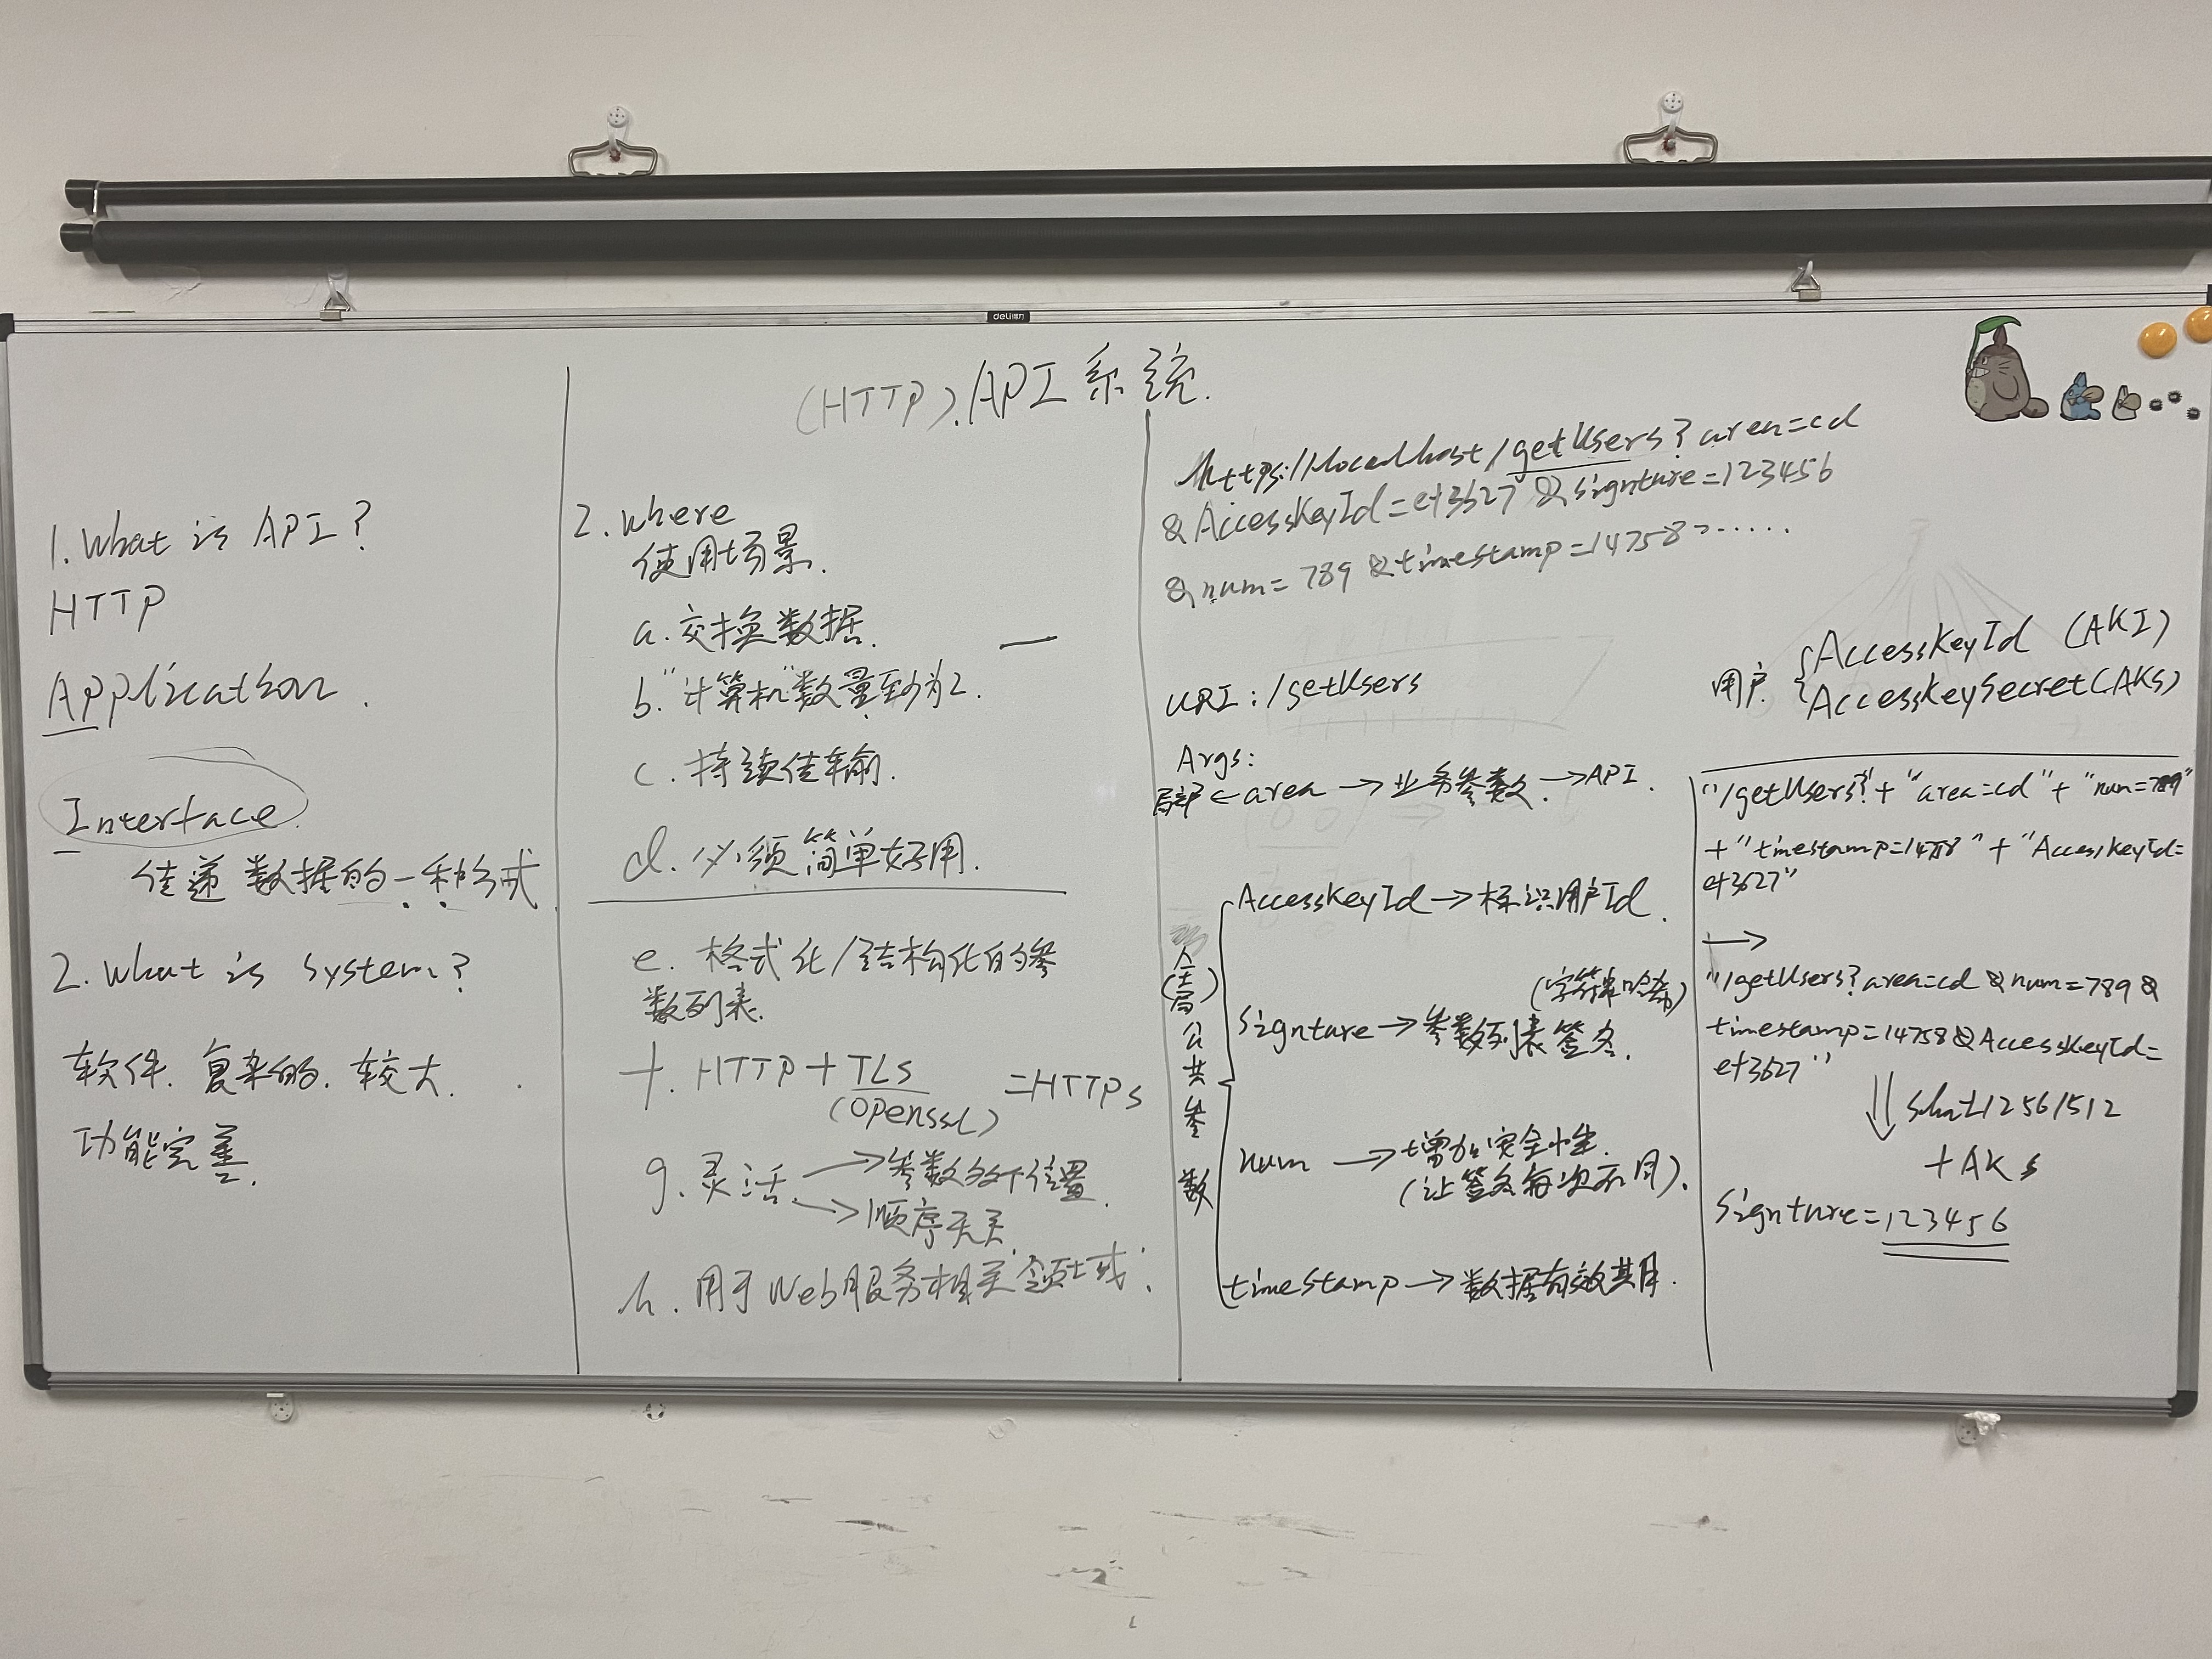 deli得力
(HTTP).API系统.
1. What is API?
HTTP
Application.
Interface.
传递数据的一种形式
2. What is system?
软件. 复杂的. 较大.
功能完善.
2. where
使用场景.
a. 交换数据.
b. "计算机"数量至少为2.
c. 持续传输.
d. 必须简单好用.
e. 格式化/结构化的参
数列表.
f. HTTP+TLS =HTTPs
(openssl)
g. 灵活 →参数多个位置.
→顺序无关.
h. 用于Web服务相关领域.
https://localhost/getUsers?area=cd
&AccessKeyId=et3627&signture=123456
&num=789&timestamp=14758......
URI:/getUsers
Args:
局部←area→业务参数.→API.
全(全局)公共参数
AccessKeyId→标识用户Id.
(字符串哈希)
signture→参数列表签名.
num→增加安全性.
(让签名每次不同).
timestamp→数据有效期.
用户 {AccessKeyId (AKI)
AccessKeySecret(AKs)
"/getUsers?"+"area=cd"+"num=789"
+"timestamp=14758"+"AccessKeyId=
et3627"
→
"/getUsers?area=cd&num=789&
timestamp=14758&AccessKeyId=
et3627"
⇓ sha1/256/512
+AKs
signture=123456